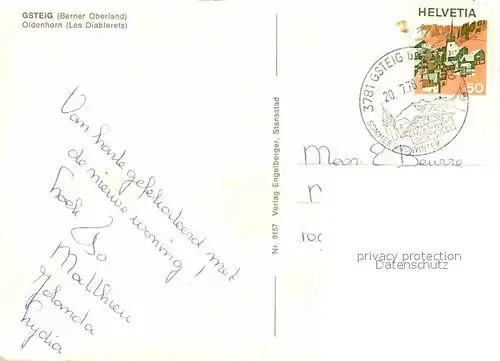 GSTEIG (Berner Oberland)
Oldenhorn (Les Diablerets)
Van harte gefeliciteerd met
de nieuwe woning!
hoek Jo
Matthieu
Yolanda
Lydia
Nr. 9157 Verlag Engelberger, Stansstad
HELVETIA
50
3781 GSTEIG
20.7.78
SOMMER UND WINTER
Mevr. E.
privacy protection
Datenschutz